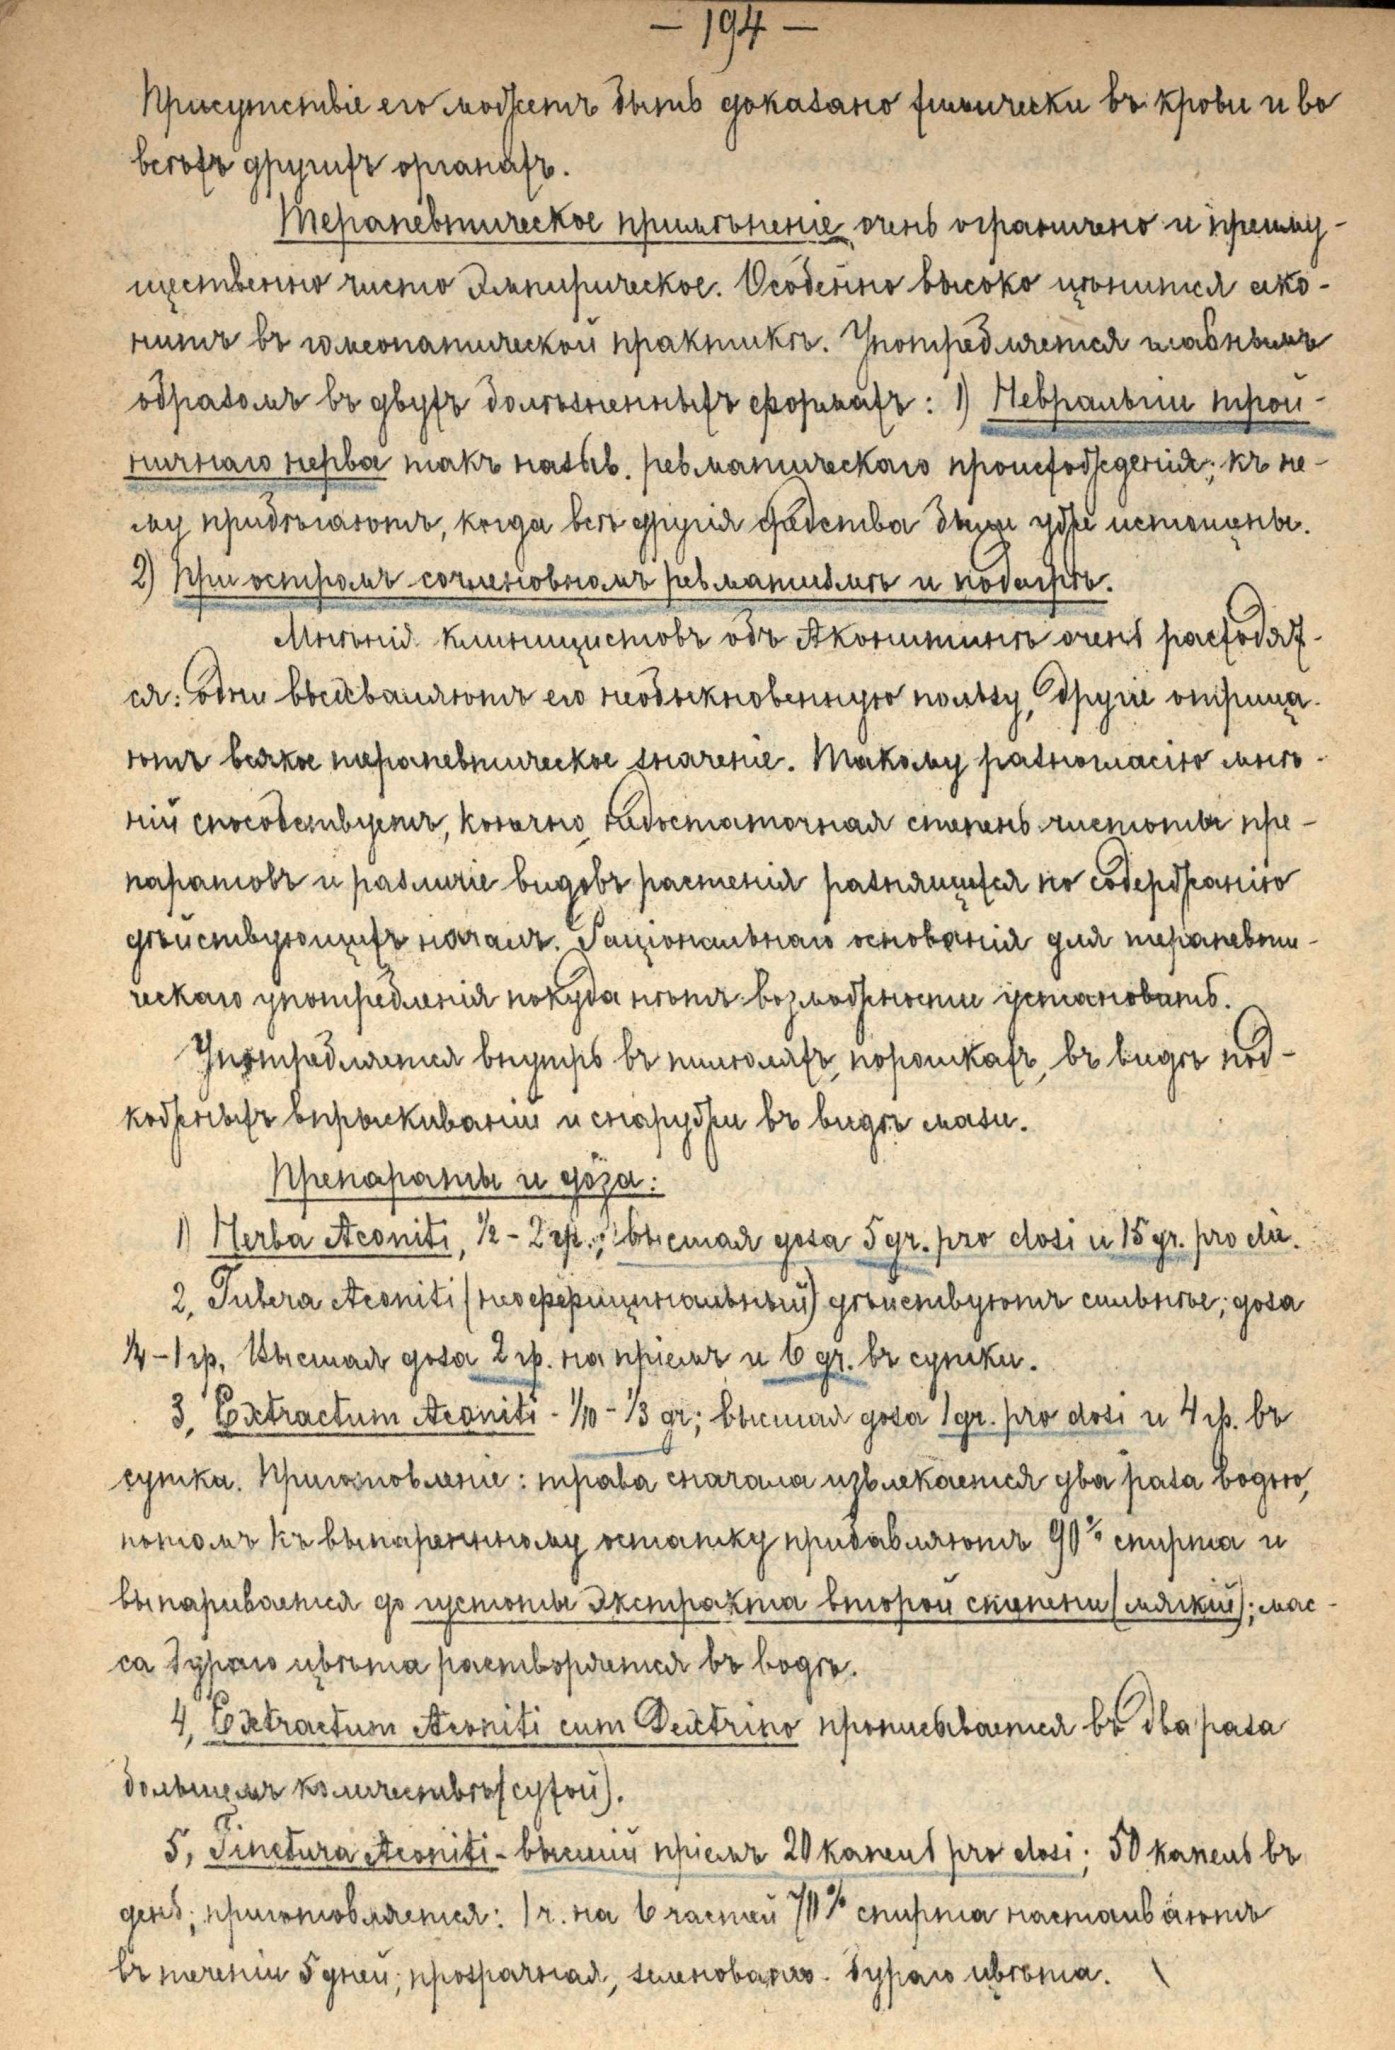 — 194 —
Присутствіе его можетъ быть доказано химически въ крови и во
всѣхъ другихъ органахъ.
Терапевтическое примѣненіе очень ограничено и преиму-
щественно чисто эмпирическое. Особенно высоко цѣнится ако-
нитъ въ гомеопатической практикѣ. Употребляется главнымъ
образомъ въ двухъ болѣзненныхъ формахъ: 1) Невральгіи трой-
ничнаго нерва такъ назыв. ревматическаго происхожденія; къ не-
му прибѣгаютъ, когда всѣ другія средства были уже истощены.
2) При остромъ сочленовномъ ревматизмѣ и подагрѣ.
Мнѣнія клиницистовъ объ Аконитинѣ очень расходят-
ся: одни высхваляютъ его необыкновенную пользу, другіе отрица-
ютъ всякое терапевтическое значеніе. Такому разногласію мнѣ-
ній способствуетъ, конечно, недостаточная степень чистоты пре-
паратовъ и различіе видовъ растенія разнящихся по содержанію
дѣйствующихъ началъ. Раціональнаго основанія для терапевти-
ческаго употребленія покуда нѣтъ возможности установить.
Употребляется внутрь въ пилюляхъ, порошкахъ, въ видѣ под-
кожныхъ впрыскиваній и снаружи въ видѣ мази.
Препараты и доза:
1) Herba Aconiti, ½ – 2 гр.; высшая доза 5 gr. pro dosi и 15 gr. pro die.
2, Tubera Aconiti (неоффицинальный) дѣйствуютъ сильнѣе; доза
¼ – 1 гр. Высшая доза 2 гр. на пріемъ и 6 gr. въ сутки.
3, Extractum Aconiti - 1/10 - 1/3 gr; высшая доза 1 gr. pro dosi и 4 гр. въ
сутки. Приготовленіе: трава сначала извлекается два раза водою,
потомъ къ выпаренному остатку прибавляютъ 90% спирта и
выпаривается до густоты экстракта второй степени (мягкій); мас-
са бураго цвѣта растворяется въ водѣ.
4, Extractum Aconiti cum Dextrino прописывается въ два раза
большемъ количествѣ (сухой).
5, Tinctura Aconiti - высшій пріемъ 20 капель pro dosi; 50 капель въ
день; приготовляется: 1 ч. на 6 частей 70% спирта настаиваютъ
въ теченіи 5 дней; прозрачная, зеленовато-бураго цвѣта.